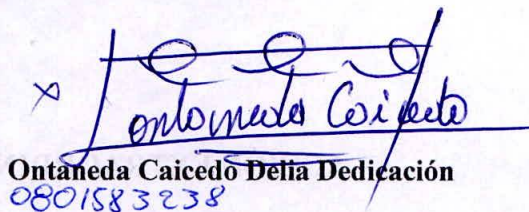 x Ontaneda Caicedo
Ontaneda Caicedo Delia Dedicación
0801583238